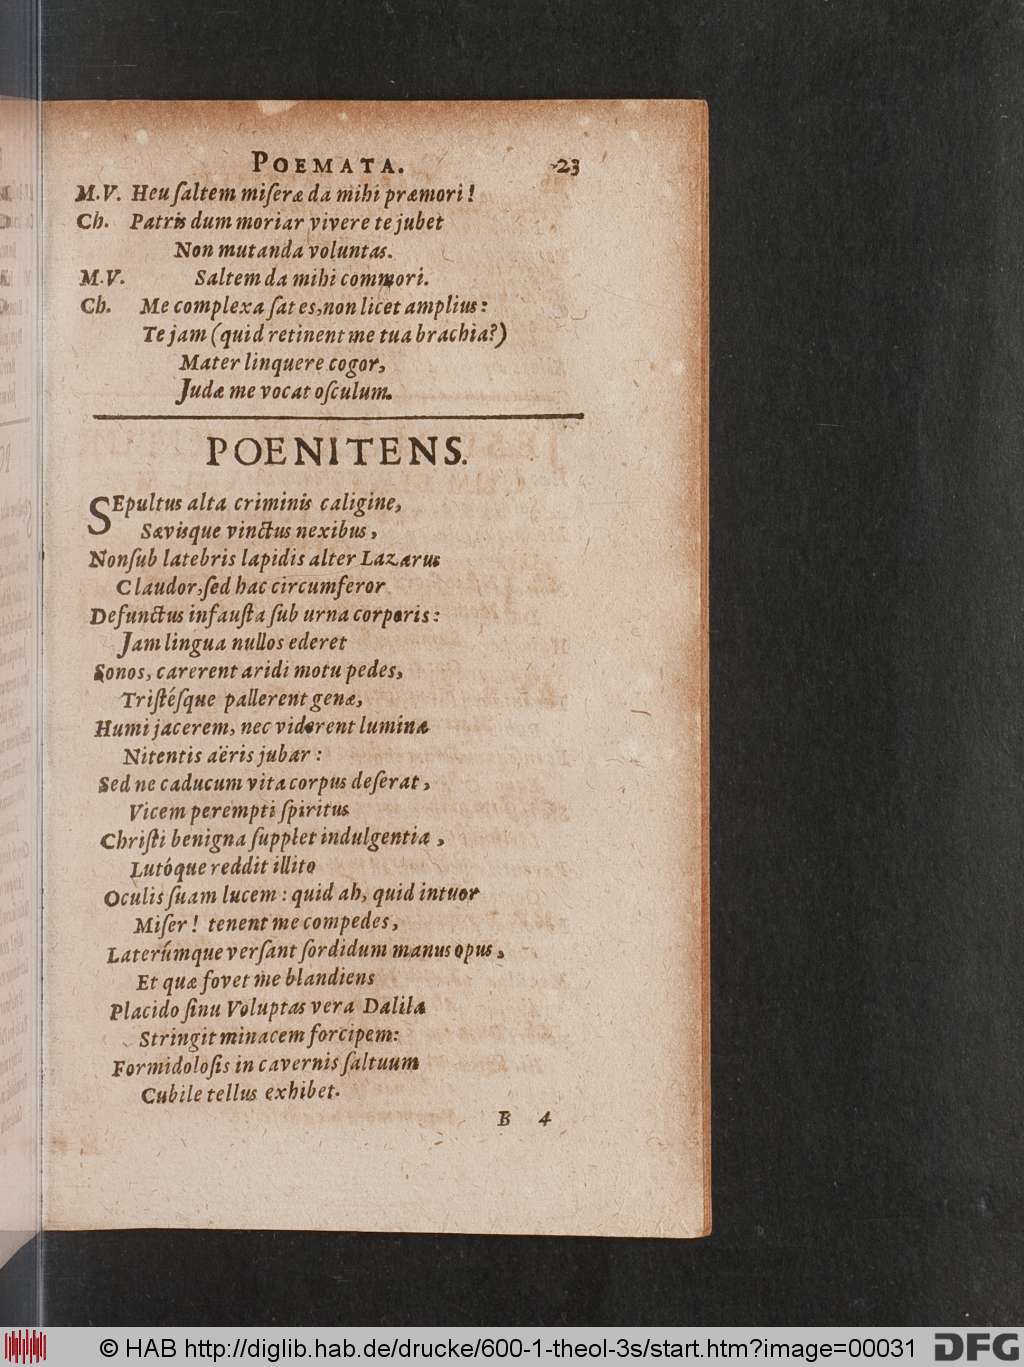 POEMATA. 23
M.V. Heu ſaltem miſeræ da mihi præmori!
Ch. Patris dum moriar vivere te jubet
Non mutanda voluntas.
M.V. Saltem da mihi commori.
Ch. Me complexa ſat es, non licet amplius:
Te jam (quid retinent me tua brachia?)
Mater linquere cogor,
Judæ me vocat oſculum.
POENITENS.
SEpultus alta criminis caligine,
Sævisque vinctus nexibus,
Non ſub latebris lapidis alter Lazarus
Claudor, ſed hac circumferor
Defunctus infauſta ſub urna corporis:
Jam lingua nullos ederet
Sonos, carerent aridi motu pedes,
Triſtéſque pallerent genæ,
Humi jacerem, nec viderent luminæ
Nitentis aëris jubar:
Sed ne caducum vita corpus deſerat,
Vicem perempti ſpiritus
Chriſti benigna ſupplet indulgentia,
Lutóque reddit illito
Oculis ſuam lucem: quid ah, quid intuor
Miſer! tenent me compedes,
Laterúmque verſant ſordidum manus opus,
Et quæ fovet me blandiens
Placido ſinu Voluptas vera Dalila
Stringit minacem forcipem:
Formidoloſis in cavernis ſaltuum
Cubile tellus exhibet.
B 4
© HAB http://diglib.hab.de/drucke/600-1-theol-3s/start.htm?image=00031
DFG